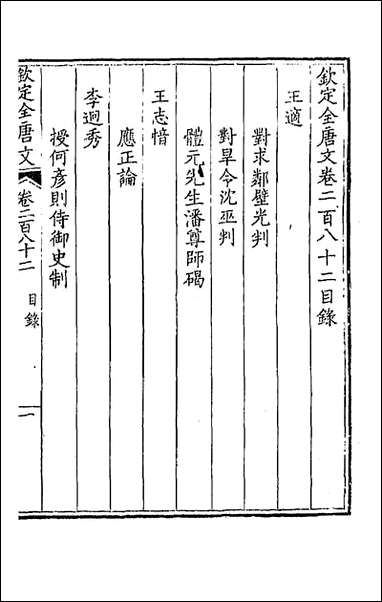 欽定全唐文卷二百八十二目錄
王適
對求鄰壁光判
對旱令沈巫判
體元先生潘尊師碣
王志愔
應正論
李迥秀
授何彥則侍御史制
欽定全唐文
卷二百八十二
目錄
一